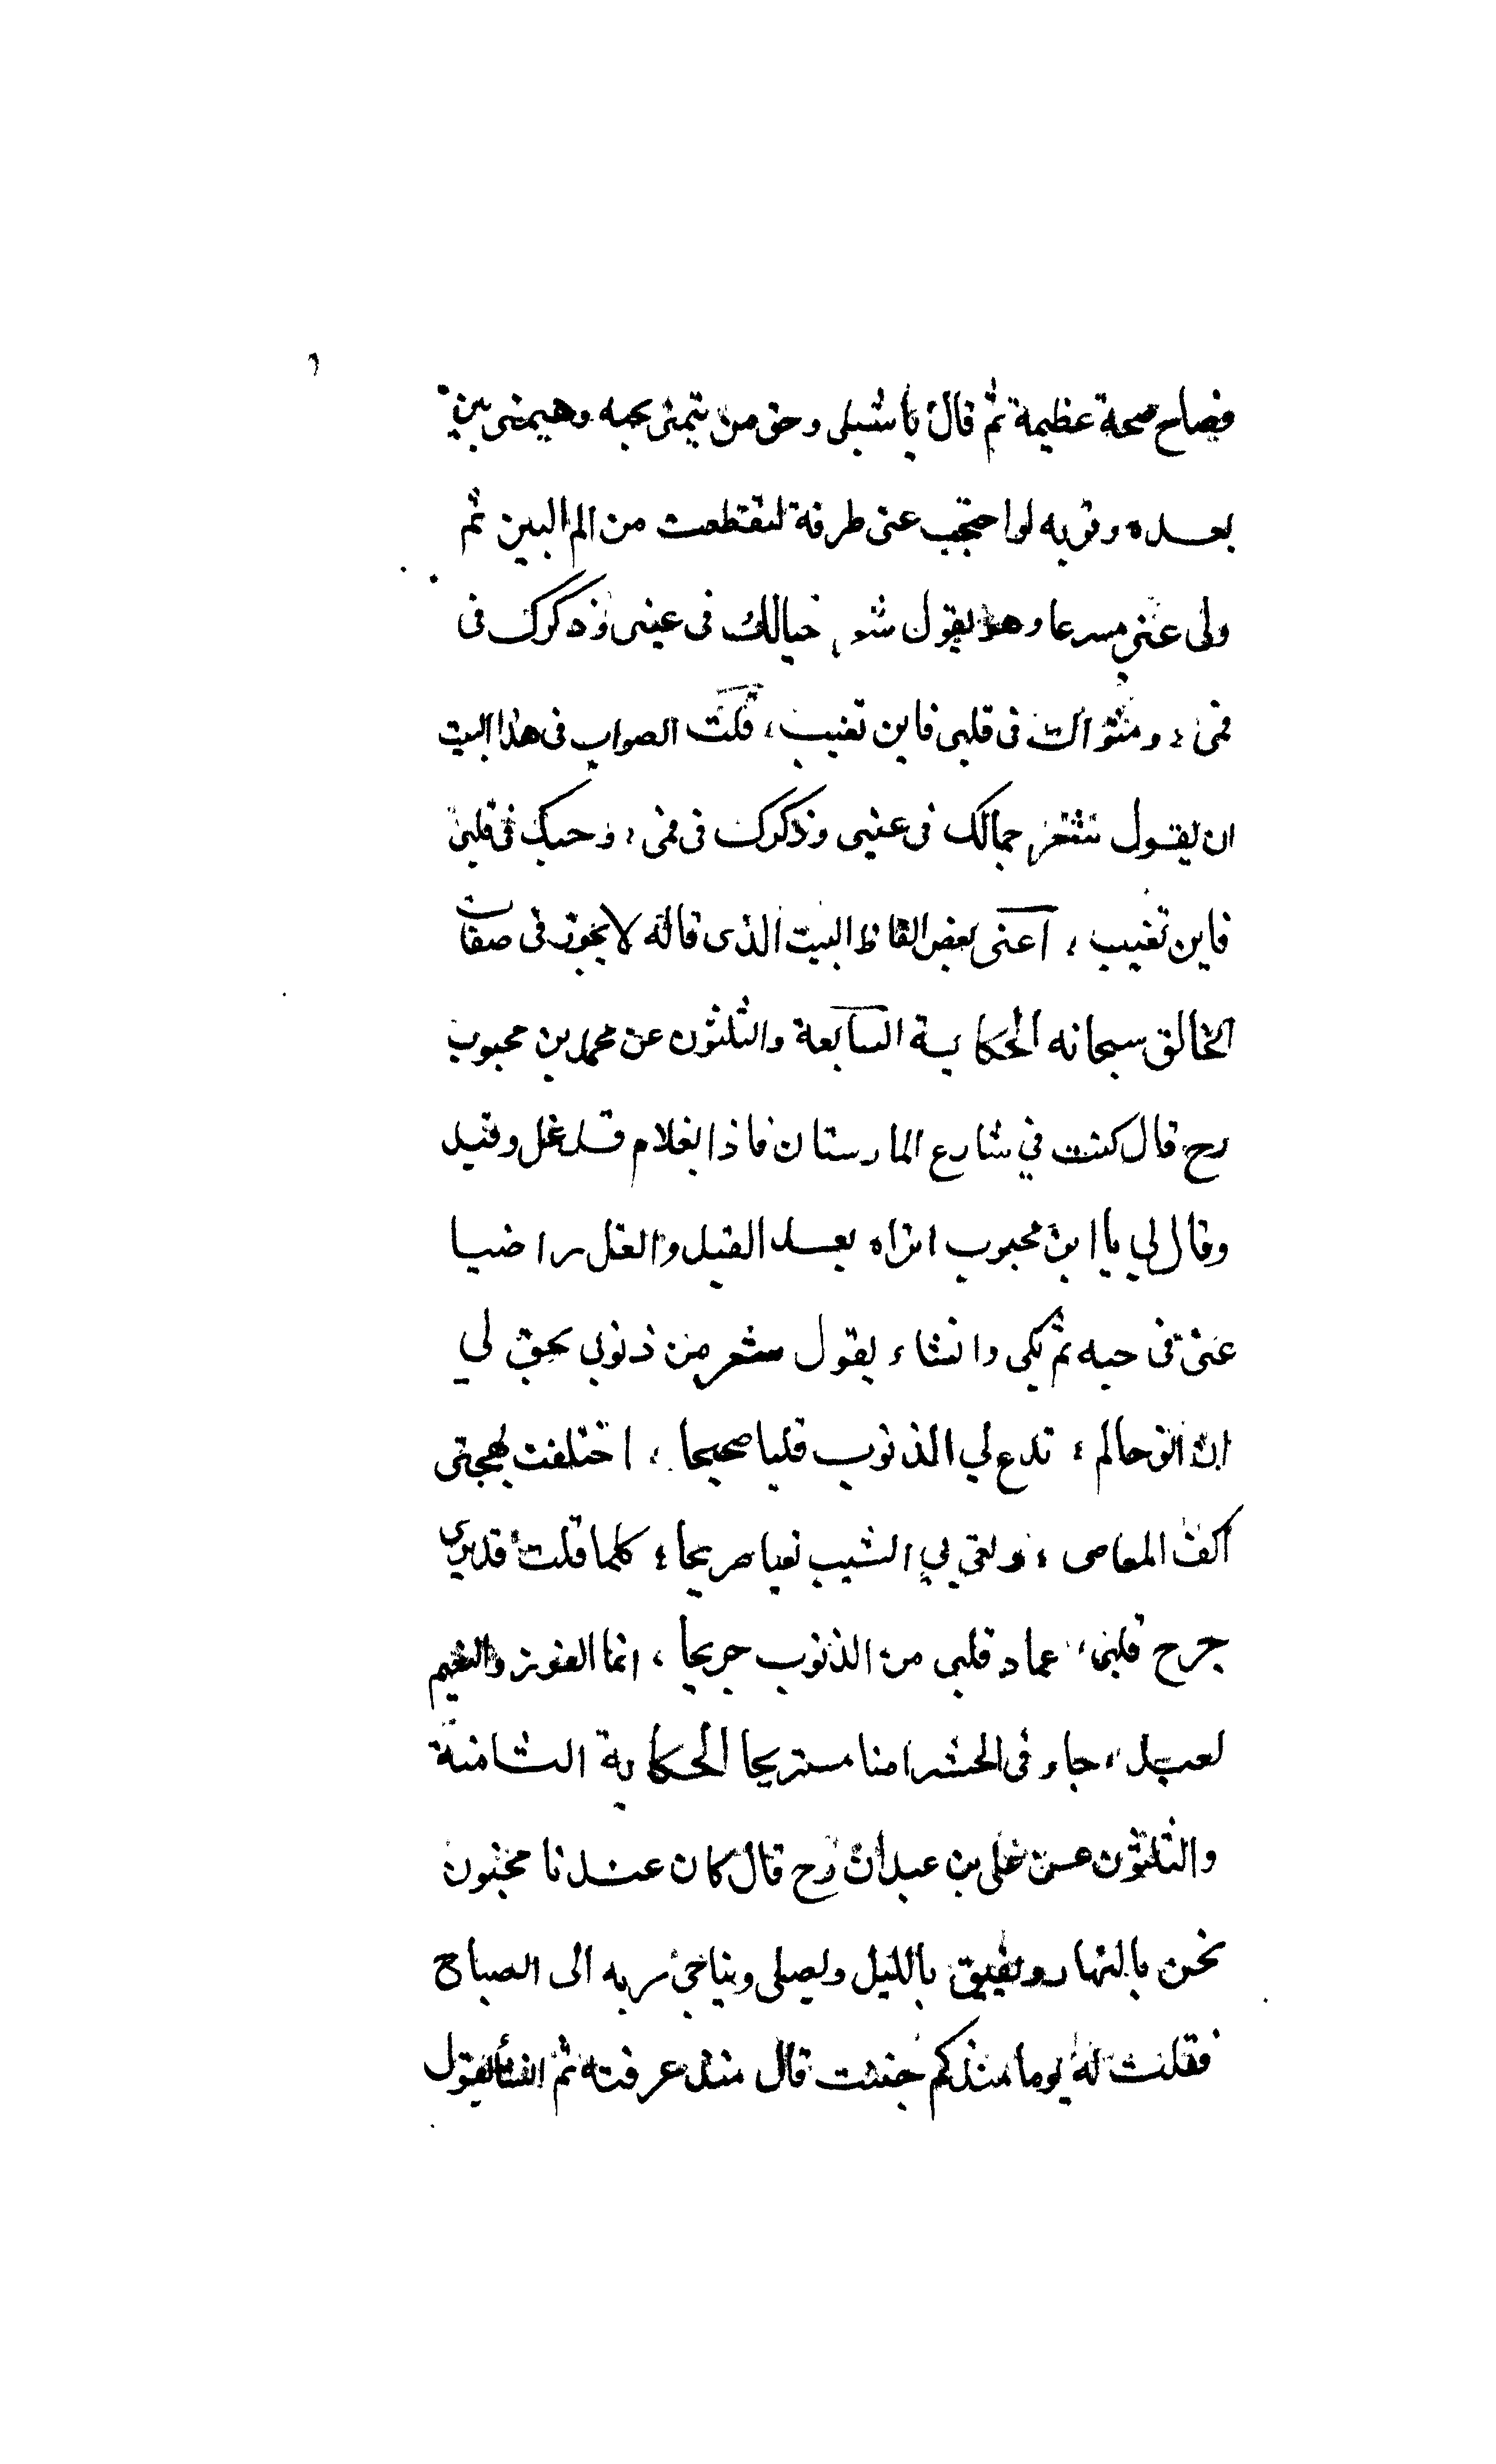 ٦
فصاح صحة عظيمة ثم قال يا شبلى وحق من تيمنى بحبه وهيمنى بين
بعده وقربه لو احتجب عنى طرفة لتقطعت من الم البين ثم
ولى عنى مسرعا وهو يقول شعر خيالك فى عينى وذكرك فى
فمى ؛ ومثواك فى قلبى فاين تغيب ، قلت الصواب فى هذا البيت
ان يقول شعر جمالك فى عينى وذكرك فى فمى ؛ وحبك فى قلبى
فاين تغيب ، اعنى بعض الفاظ البيت الذى قاله لا يجوز فى صفات
الخالق سبحانه الحكاية السابعة والثلثون عن محمد بن محبوب
رح قال كنت في شارع المارستان فاذا بغلام قد غل وقيد
وقال لي يا ابن محبوب اتراه بعد القيد والغل راضيا
عنى فى حبه ثم بكى وانشاء يقول شعر من ذنوبى يحق لي
ان انوحا لم ؛ تدع لي الذنوب قلبا صحيحا ، اختلفت بهجتى
اكف المعاصى ؛ ونعى لي الشيب نعيا صريحا ؛ كلما قلت قد برى
جرح قلبى ، عاد قلبى من الذنوب جريحا ، انما الفوز والنعيم
لعبد ، جاء فى الحشر امنا مستريحا الحكاية الثامنة
والثلثون عن على بن عبدان رح قال كان عندنا مجنون
نجن بالنهار ويفيق بالليل ويصلى ويناجى ربه الى الصباح
فقلت له يوما منذكم جننت قال منذ عرفته ثم انشأ يقول